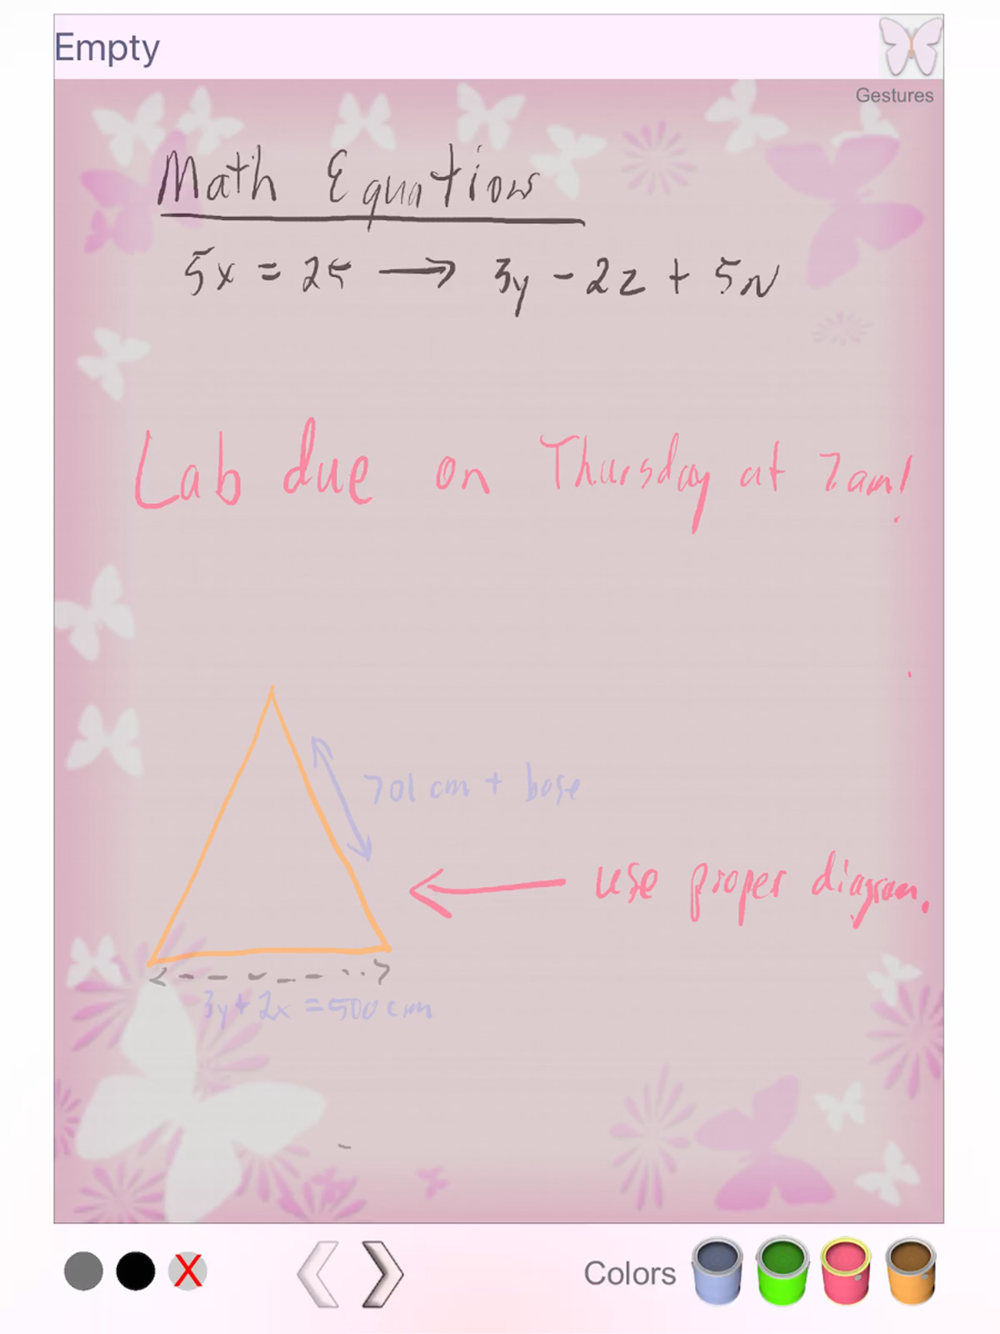 Empty
Gestures
Math Equations
5x = 25 → 3y - 2z + 5N
Lab due on Thursday at 7am!
701 cm + base
use proper diagram.
3y + 2x = 500 cm
Colors